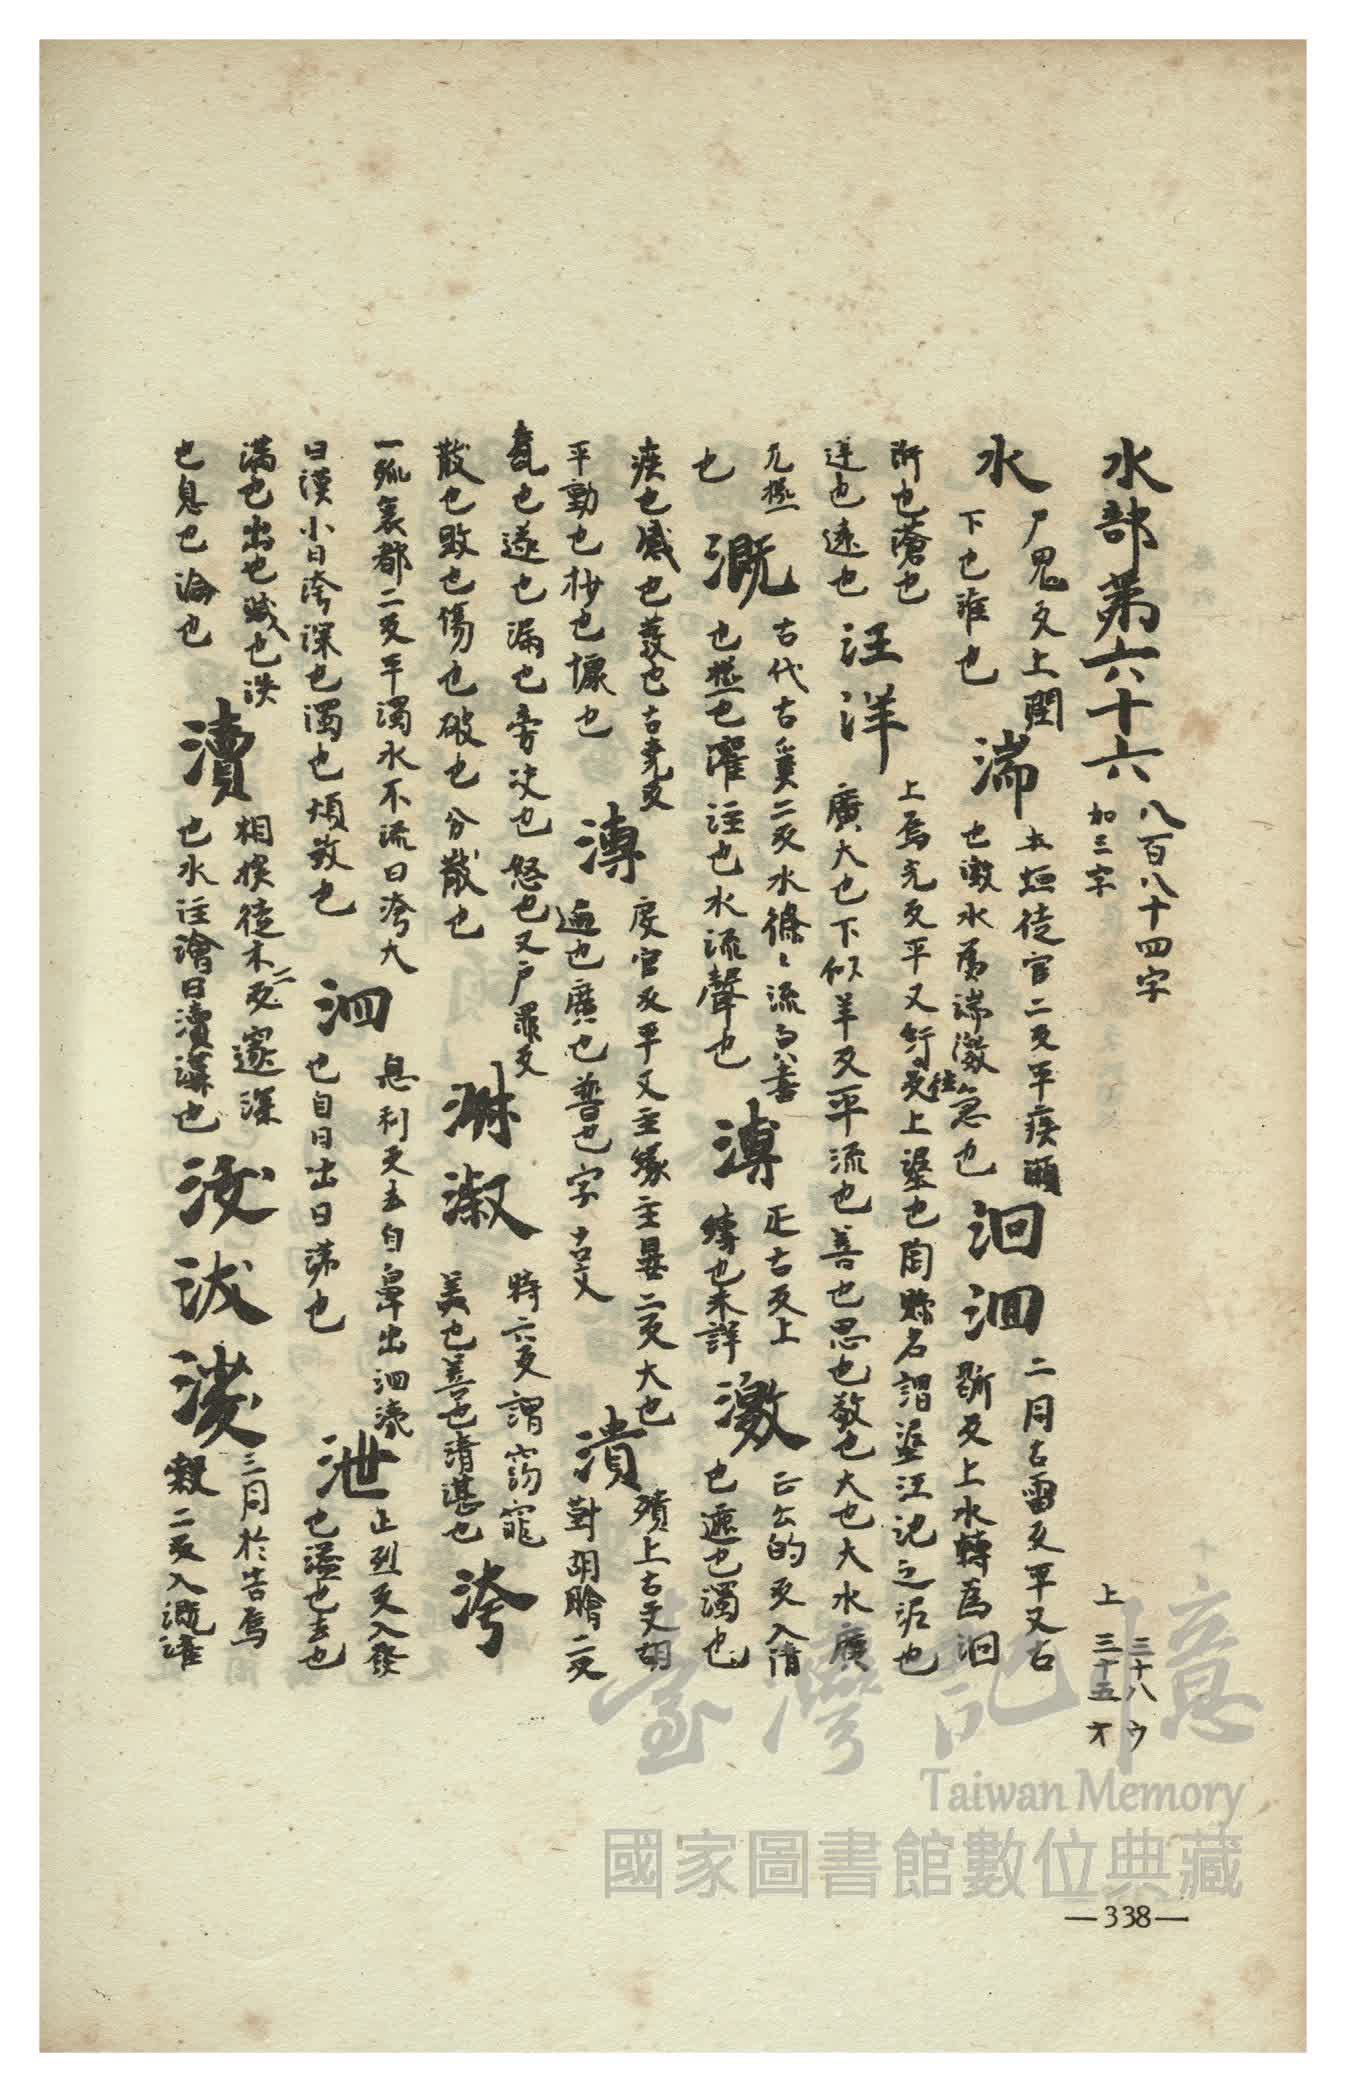 水部第六十六 八百八十四字
加三字
上 三十八ウ
三十五オ
水 尸鬼反上閏
下也准也
湍 土短徒官二反平疾瀬
也激水為湍激急也
洄 泗 二同古雷反平又古
斷反上水轉為洄
所也蓄也
逆也遠也
汪洋 上烏光反平又紆往反上望也陶縣名謂盗汪池之泥也
廣大也下似羊反平流也善也思也敬也大也大水廣
兀極
也
溉 古代古奚二反水條々流皃喜
也極也灌注也水流聲也
溥 正古反上
縛也未詳
激 正公的反入清
也遮也濁也
疾也感也發也古堯反
平動也抄也慷也
漙 度官反平又主緣主晏二反大也
遍也廣也普也字古文
潰 殨上古文胡
對胡膾二反
亂也遂也漏也旁决也怒也又戸罪反
散也敗也傷也破也分散也
淋淑 時六反謂窈窕
美也善也清湛也
洿
一孤哀都二反平濁水不流曰洿大
曰潢小曰洿深也濁也煩敬也
泗 息利反去自鼻出泗液
也自目出曰涕也
泄 正列反入發
也溢也去也
滿也出也減也泆
也息也淪也
瀆 相候徒木二反邃深
也水注澮曰瀆溝也
三同於告烏
穀二反入溉灌
—338—
臺灣記憶
Taiwan Memory
國家圖書館數位典藏